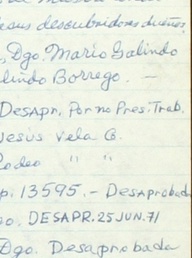 sus descubridores dueños,
Dgo. Mario Galindo
lindo Borrego. —
DesApr. Por no Pres. Trab.
Jesús Vela G.
Rodeo " "
p. 13595.- Desaprobada
go. DESAPR. 25 JUN. 71
Dgo. Desaprobada